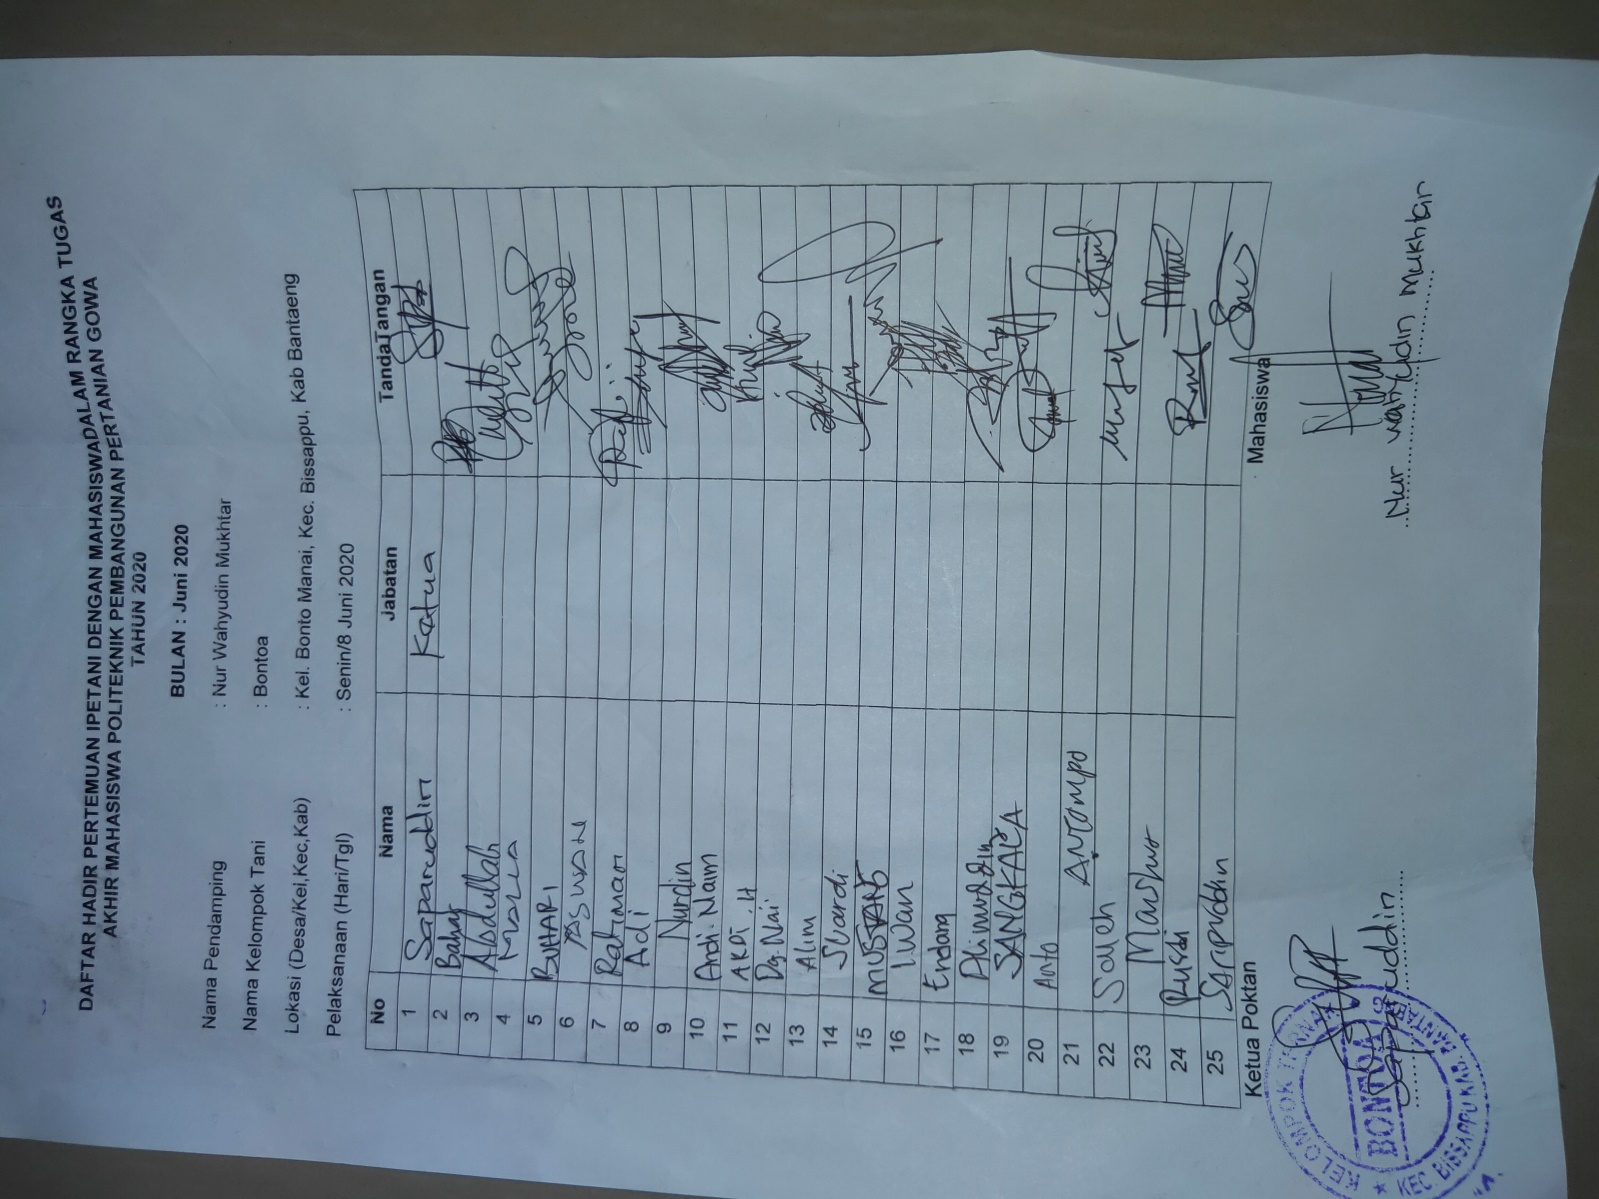 DAFTAR HADIR PERTEMUAN IPETANI DENGAN MAHASISWADALAM RANGKA TUGAS
AKHIR MAHASISWA POLITEKNIK PEMBANGUNAN PERTANIAN GOWA
TAHUN 2020
BULAN : Juni 2020
Nama Pendamping : Nur Wahyudin Mukhtar
Nama Kelompok Tani : Bontoa
Lokasi (Desa/Kel,Kec,Kab) : Kel. Bonto Manai, Kec. Bissappu, Kab Bantaeng
Pelaksanaan (Hari/Tgl) : Senin/8 Juni 2020
No Nama Jabatan TandaTangan
1 Saparuddin Katua
2 Bahar
3 Abdullah
4
5 BUHARI
6 ASWAN
7 Rahman
8 Adi
9 Nurdin
10 Andi Naim
11 AKRI . H
12 Dg. Nai
13 Alim
14 Suardi
15 MUSTANG
16 Iwan
17 Endang
18 Alimuddin
19 SANGKALA
20 Anto
21 Antompo
22 Saleh
23 Manshur
24 Rusdi
25 Saripuddin
Ketua Poktan Mahasiswa
KELOMPOK TANI
BONTOA
KEC BISSAPPU KAB. BANTAENG
Saparuddin
Nur Wahyudin Mukhtar